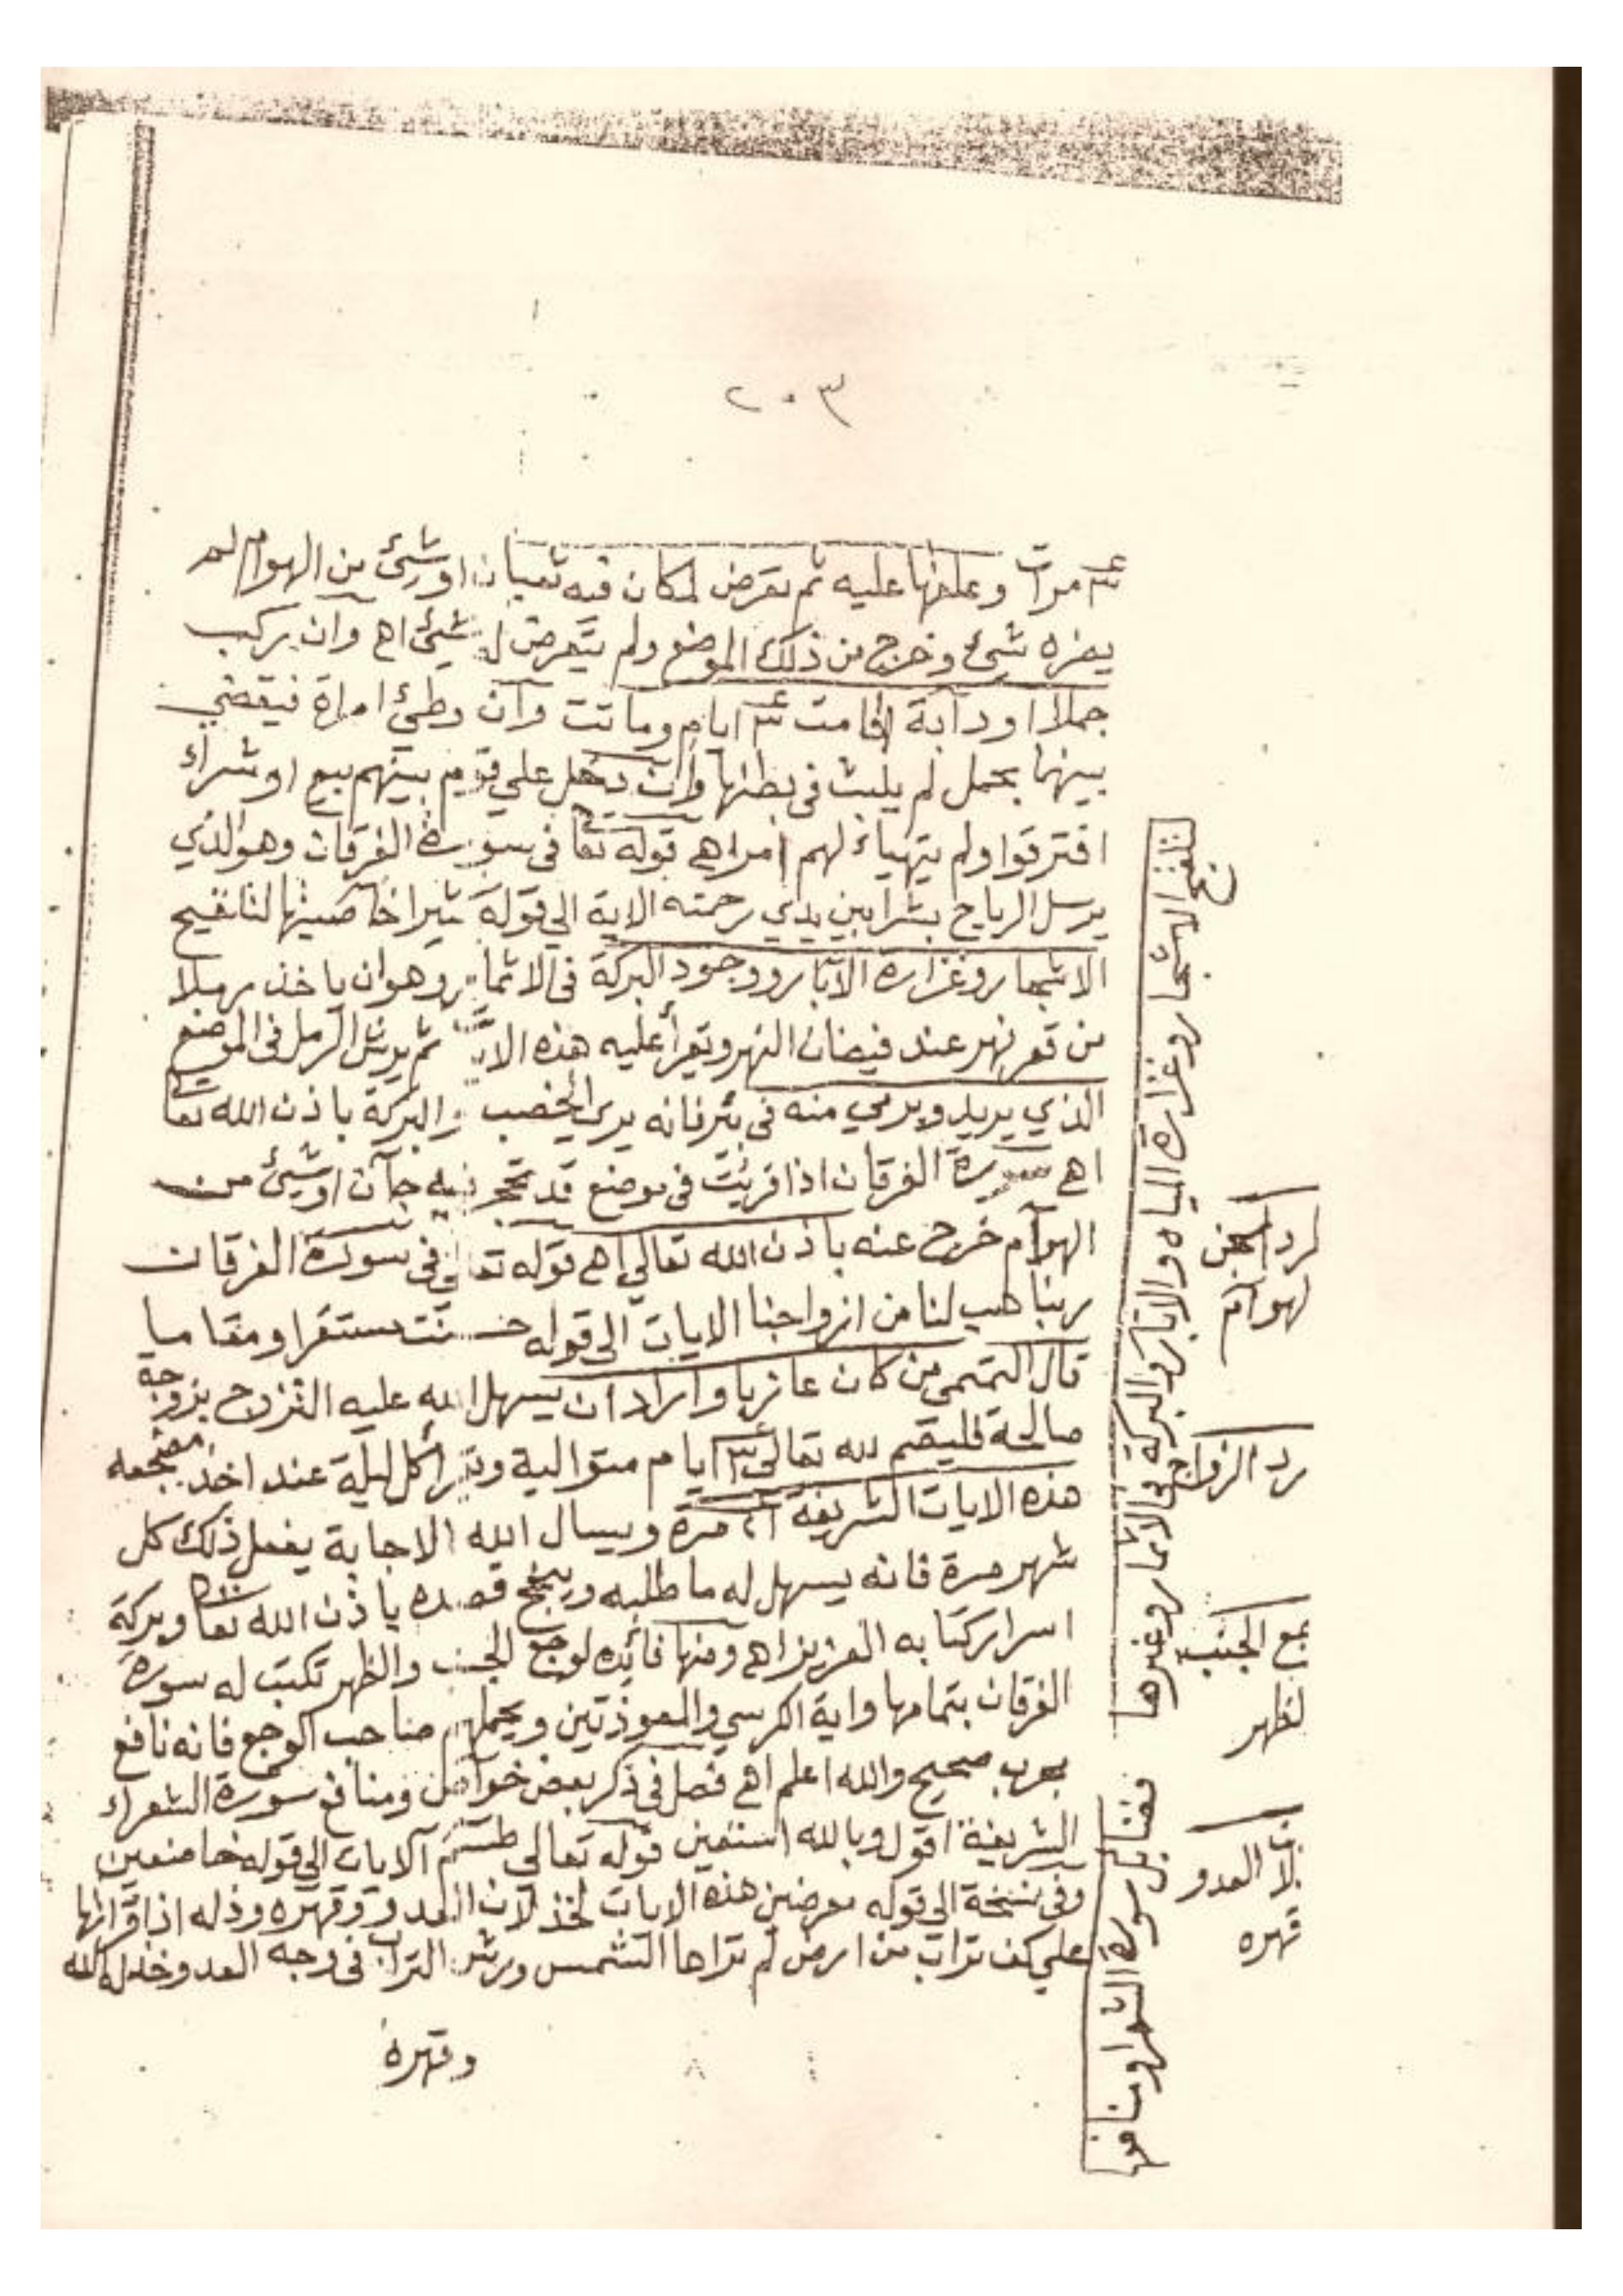 ٢٠٣
٣ مرات وعلقها عليه ثم تعرض لمكان فيه ثعبان او شيئ من الهوام لم
يضره شيئ وخرج من ذلك الموضع ولم يتعرض له شيئ اهـ وان يركب
جملا او دآبة اقامت ٣ ايام وماتت وان وطئ امراة فيقضي
بينهما بحمل لم يلبث فى بطنها وان دخل علي قوم بينهم بيع او شراء
افترقوا ولم يتهياء لهم امر اهـ قوله تعا فى سورة الفرقان وهو الذي
يرسل الرياح بشرا بين يدي رحمته الاية الي قوله كثيرا خاصيتها لتلقيح
الاشجار وغزارة الآبار ووجود البركة فى الاثمار وهو ان ياخذ رملا
من قعر نهر عند فيضان النهر ويقرأ عليه هذه الاية ثم يرش الرمل فى الموضع
الذي يريد ويرمي منه فى بئر فانه يرى الخصب والبركة باذن الله تعا
اهـ سورة الفرقان اذا قريت فى موضع قد تحجر فيه جآن او شيئ من
الهوآم خرج عنه باذن الله تعالي اهـ قوله تعالى فى سورة الفرقان
ربنا هب لنا من ازواجنا الايات الى قوله حسنت مستقرا ومقاما
قال التميمى من كان عازبا واراد ان يسهل الله عليه التزوج بزوجة
صالحة فليصم لله تعالى ٣ ايام متوالية ويقرأ كل ليلة عند اخذ مضجعه
هذه الايات الشريفة ٢١ مرة ويسال الله الاجابة يفعل ذلك كل
شهر مرة فانه يسهل له ما طلبه وينجح قصده باذن الله تعا وبركة
اسرار كتابه العزيز اهـ ومنها فائده لوجع الجنب والظهر تكتب له سورة
الفرقان بتمامها واية الكرسي والمعوذتين ويحملهم صاحب الوجع فانه نافع
مجرب صحيح والله اعلم اهـ فصل فى ذكر بعض خواص ومنافع سورة الشعراء
الشريفة اقول وبالله استعين قوله تعالي طسم الايات الي قوله خاضعين
وفى نسخة الي قوله معرضين هذه الايات لخذلان العدو وقهره وذله اذا قرأتها
علي كف تراب من ارض لم تراها الشمس ورش التراب فى وجه العدو خذله الله
وقهره
لتلقيح الاشجار وغزارة المياه والابار والبركة فى الاثمار وغيرها
لرد الجن
لهوام
رد الزواج
جع الجنب
لظهر
فضايل سورة الشعرا ومنافعها
لان العدو
قهره